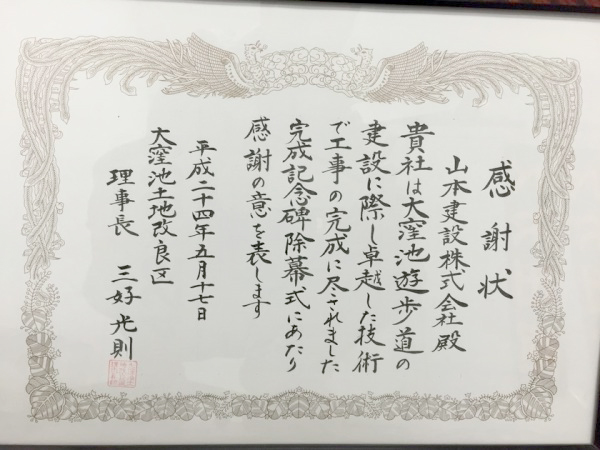 感謝状
山本建設株式会社殿
貴社は大窪池遊歩道の
建設に際し卓越した技術
で工事の完成に尽されました
完成記念碑除幕式にあたり
感謝の意を表します
平成二十四年五月十七日
大窪池土地改良区
理事長 三好光則